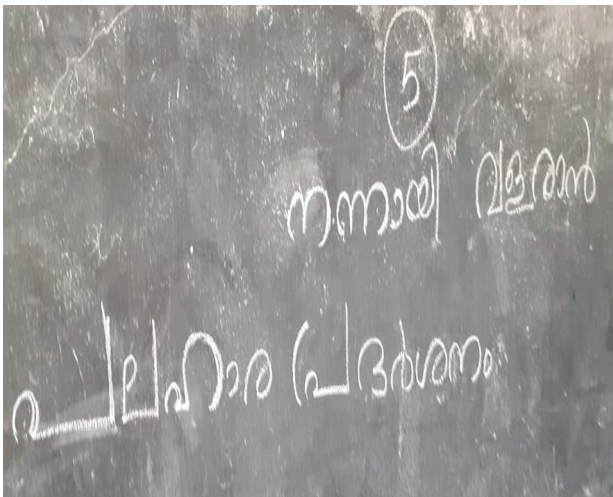 5
നന്നായി വളരാൻ
പലഹാര പ്രദർശനം